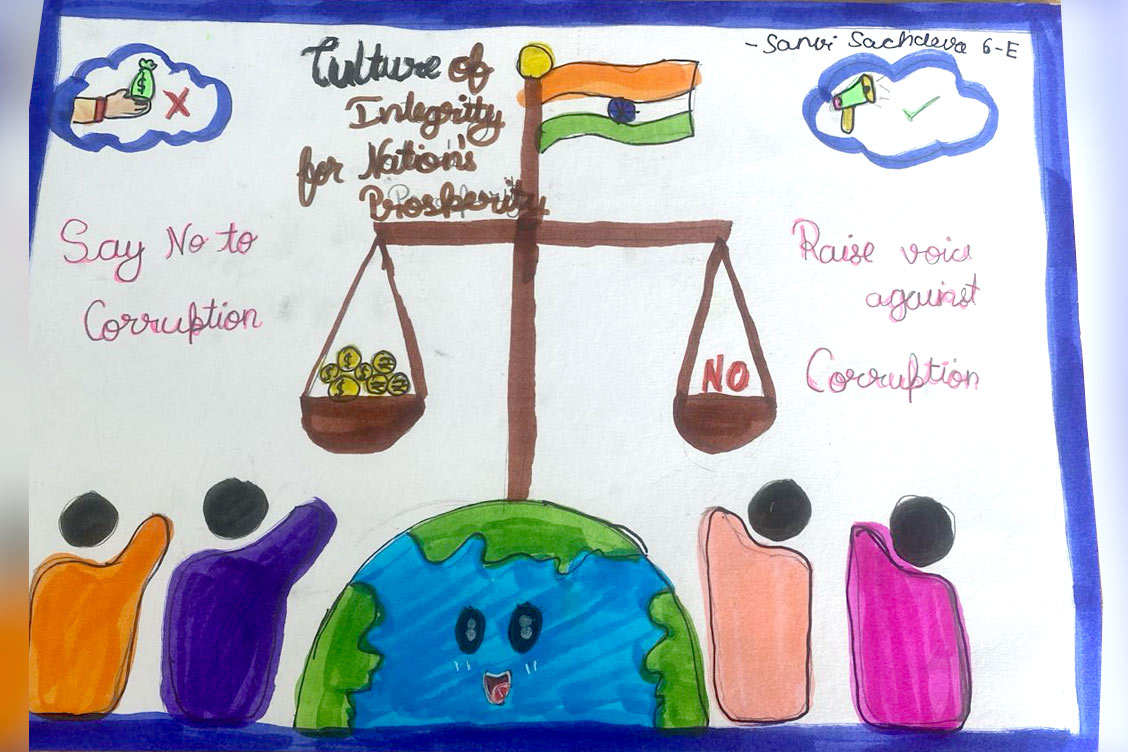 - Sanvi Sachdeva 6-E
Culture of
Integritty
for Nation's
Prosperity
Say No to
Corruption
Raise voice
against
Corruption
NO